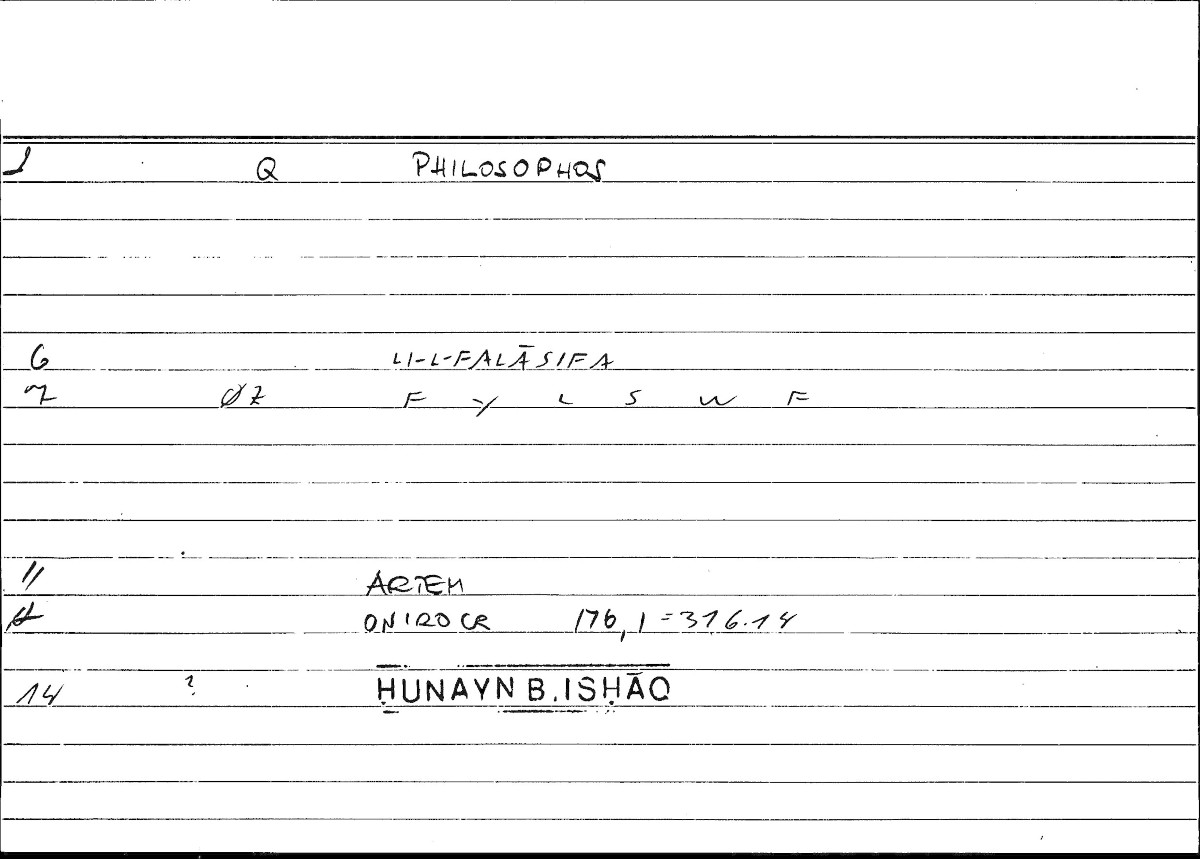 1 Q PHILOSOPHOS
6 LI-L-FALĀSIFA
7 ØZ F Y L S W F
11 ARTEM
ONIROCR 176,1=316.14
14 ? ḤUNAYN B.ISḤĀQ